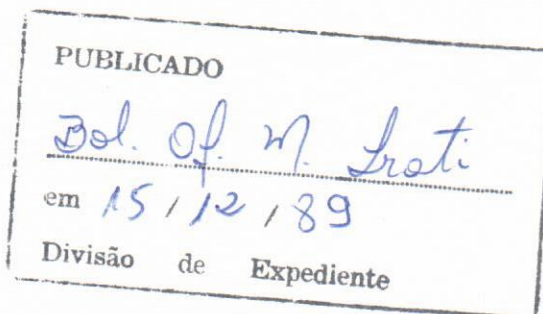 PUBLICADO
Bol. Of. M. Irati
em 15/12/89
Divisão de Expediente